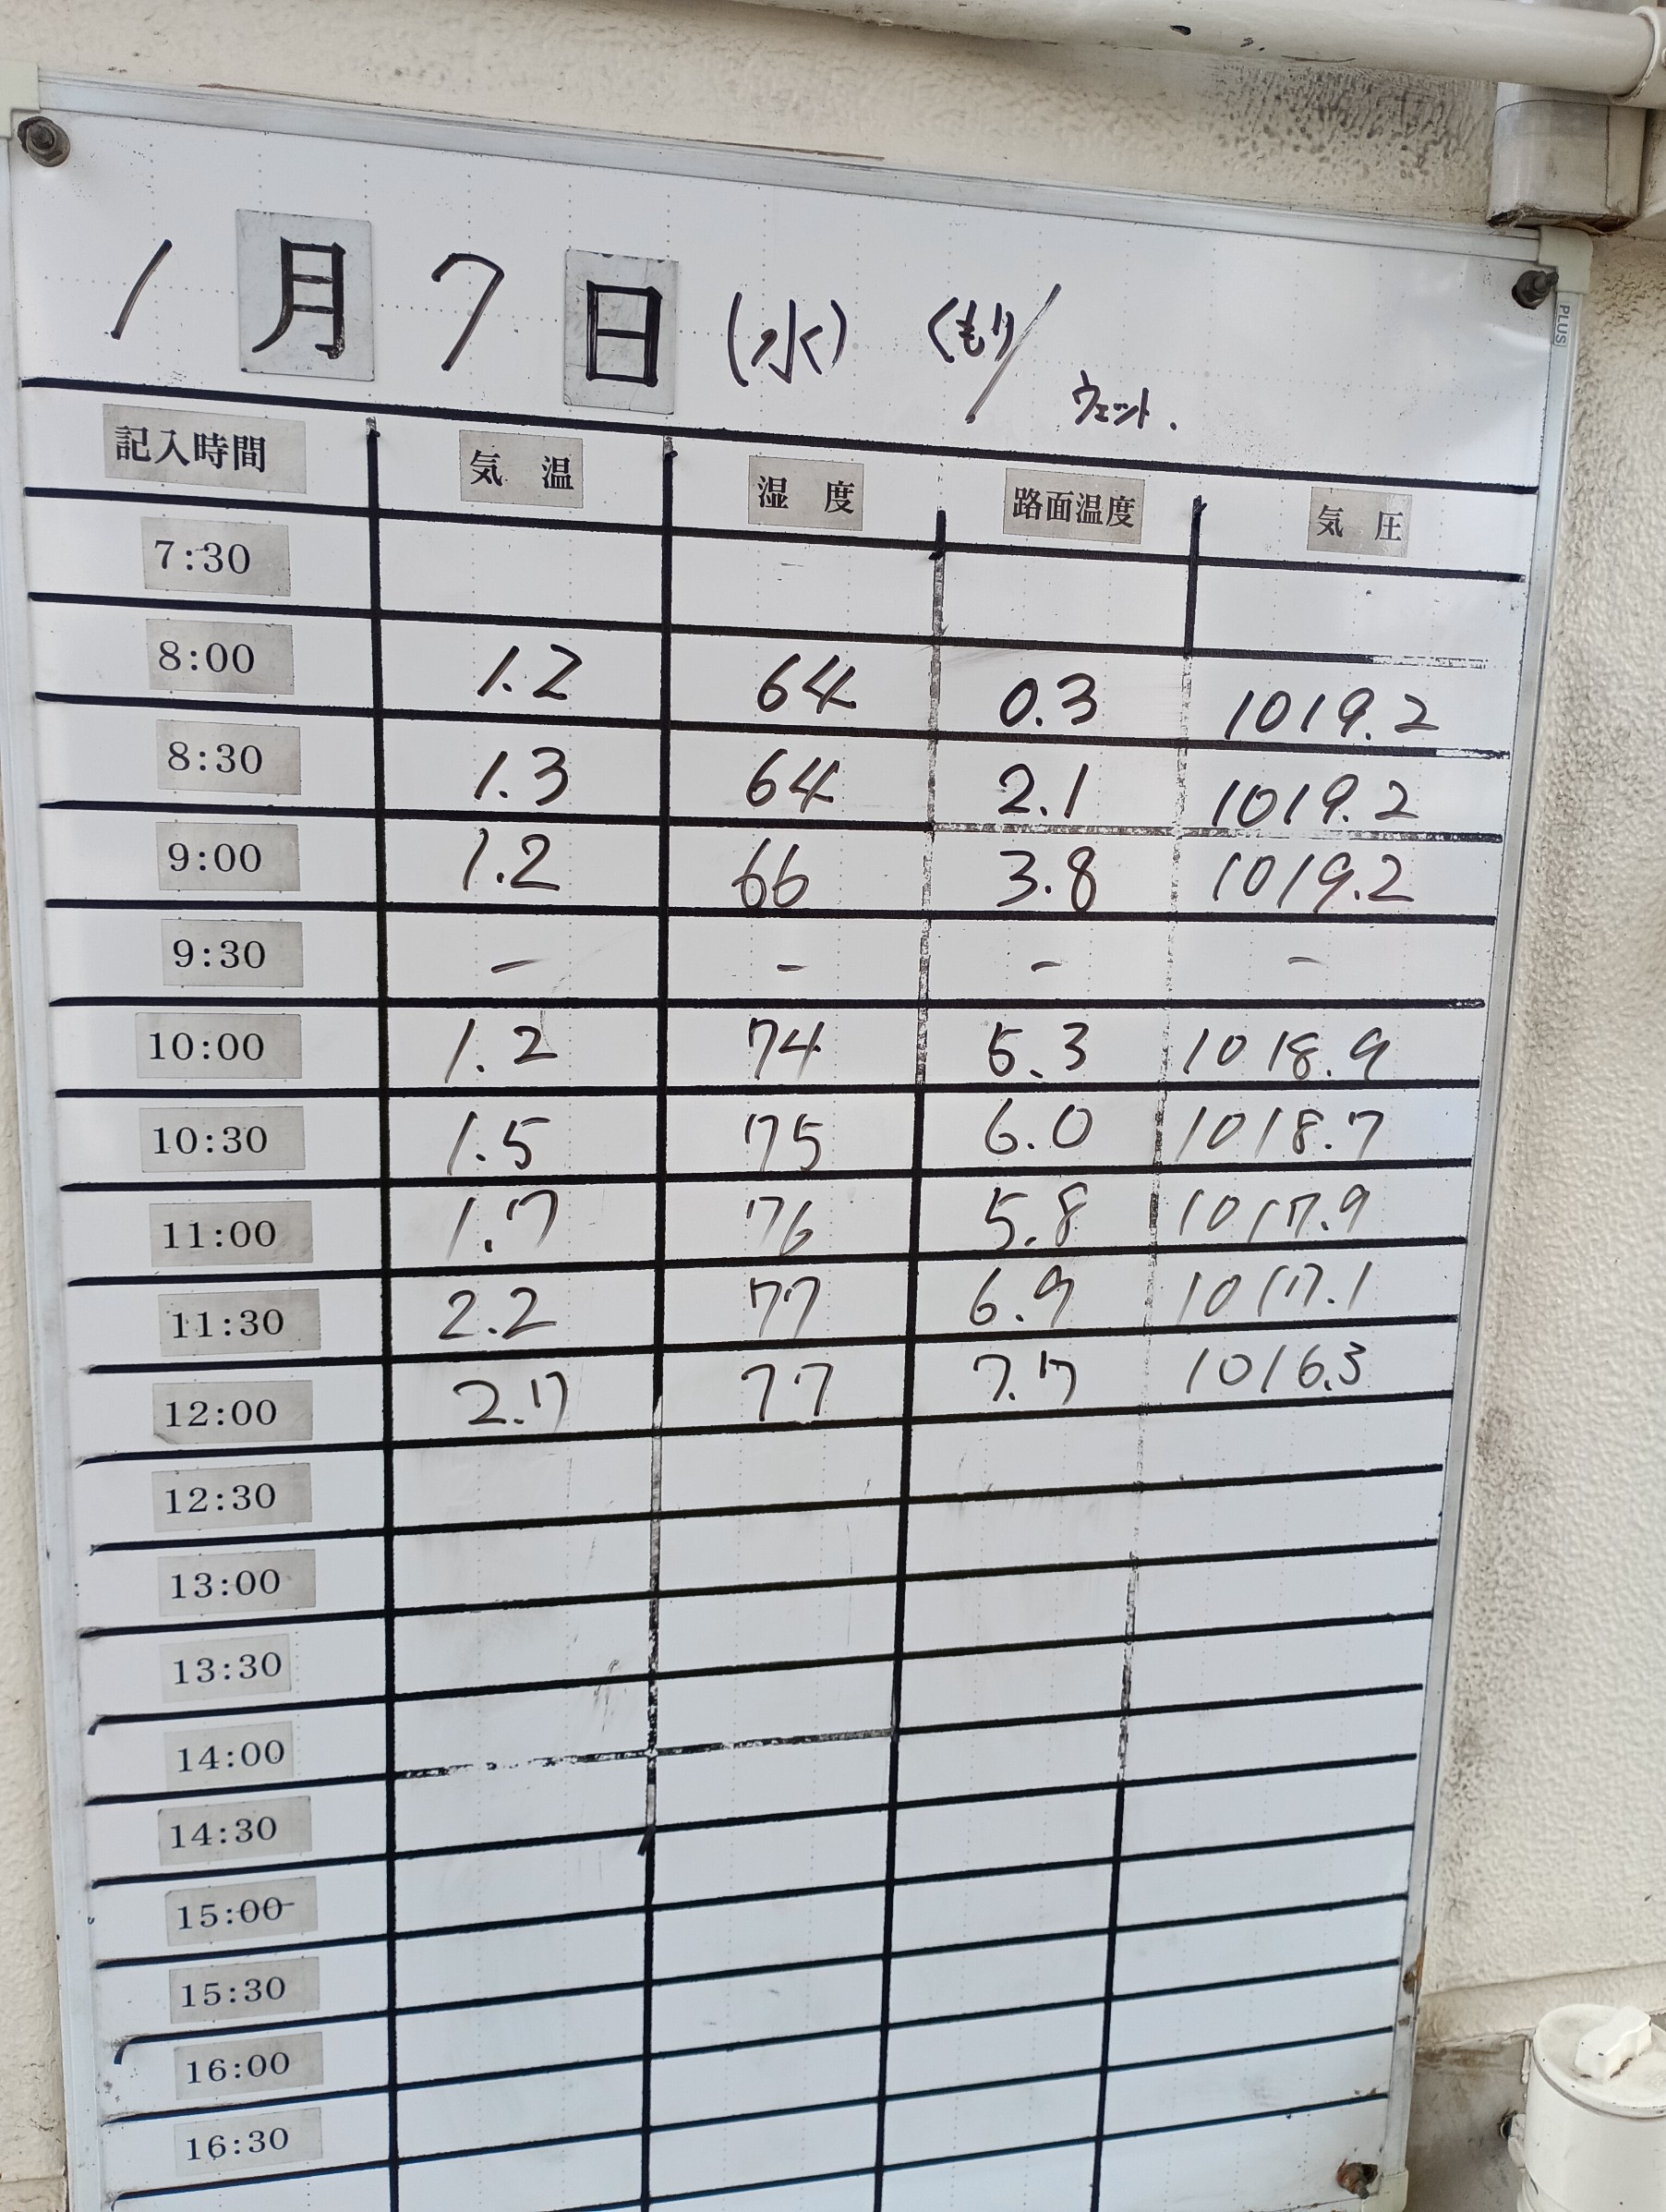 1月7日(水) くもり/ウェット.
PLUS
記入時間 気温 湿度 路面温度 気圧
7:30
8:00 1.2 64 0.3 1019.2
8:30 1.3 64 2.1 1019.2
9:00 1.2 66 3.8 1019.2
9:30 - - - -
10:00 1.2 74 5.3 1018.9
10:30 1.5 75 6.0 1018.7
11:00 1.7 76 5.8 1017.9
11:30 2.2 77 6.9 1017.1
12:00 2.7 77 7.7 1016.3
12:30
13:00
13:30
14:00
14:30
15:00
15:30
16:00
16:30